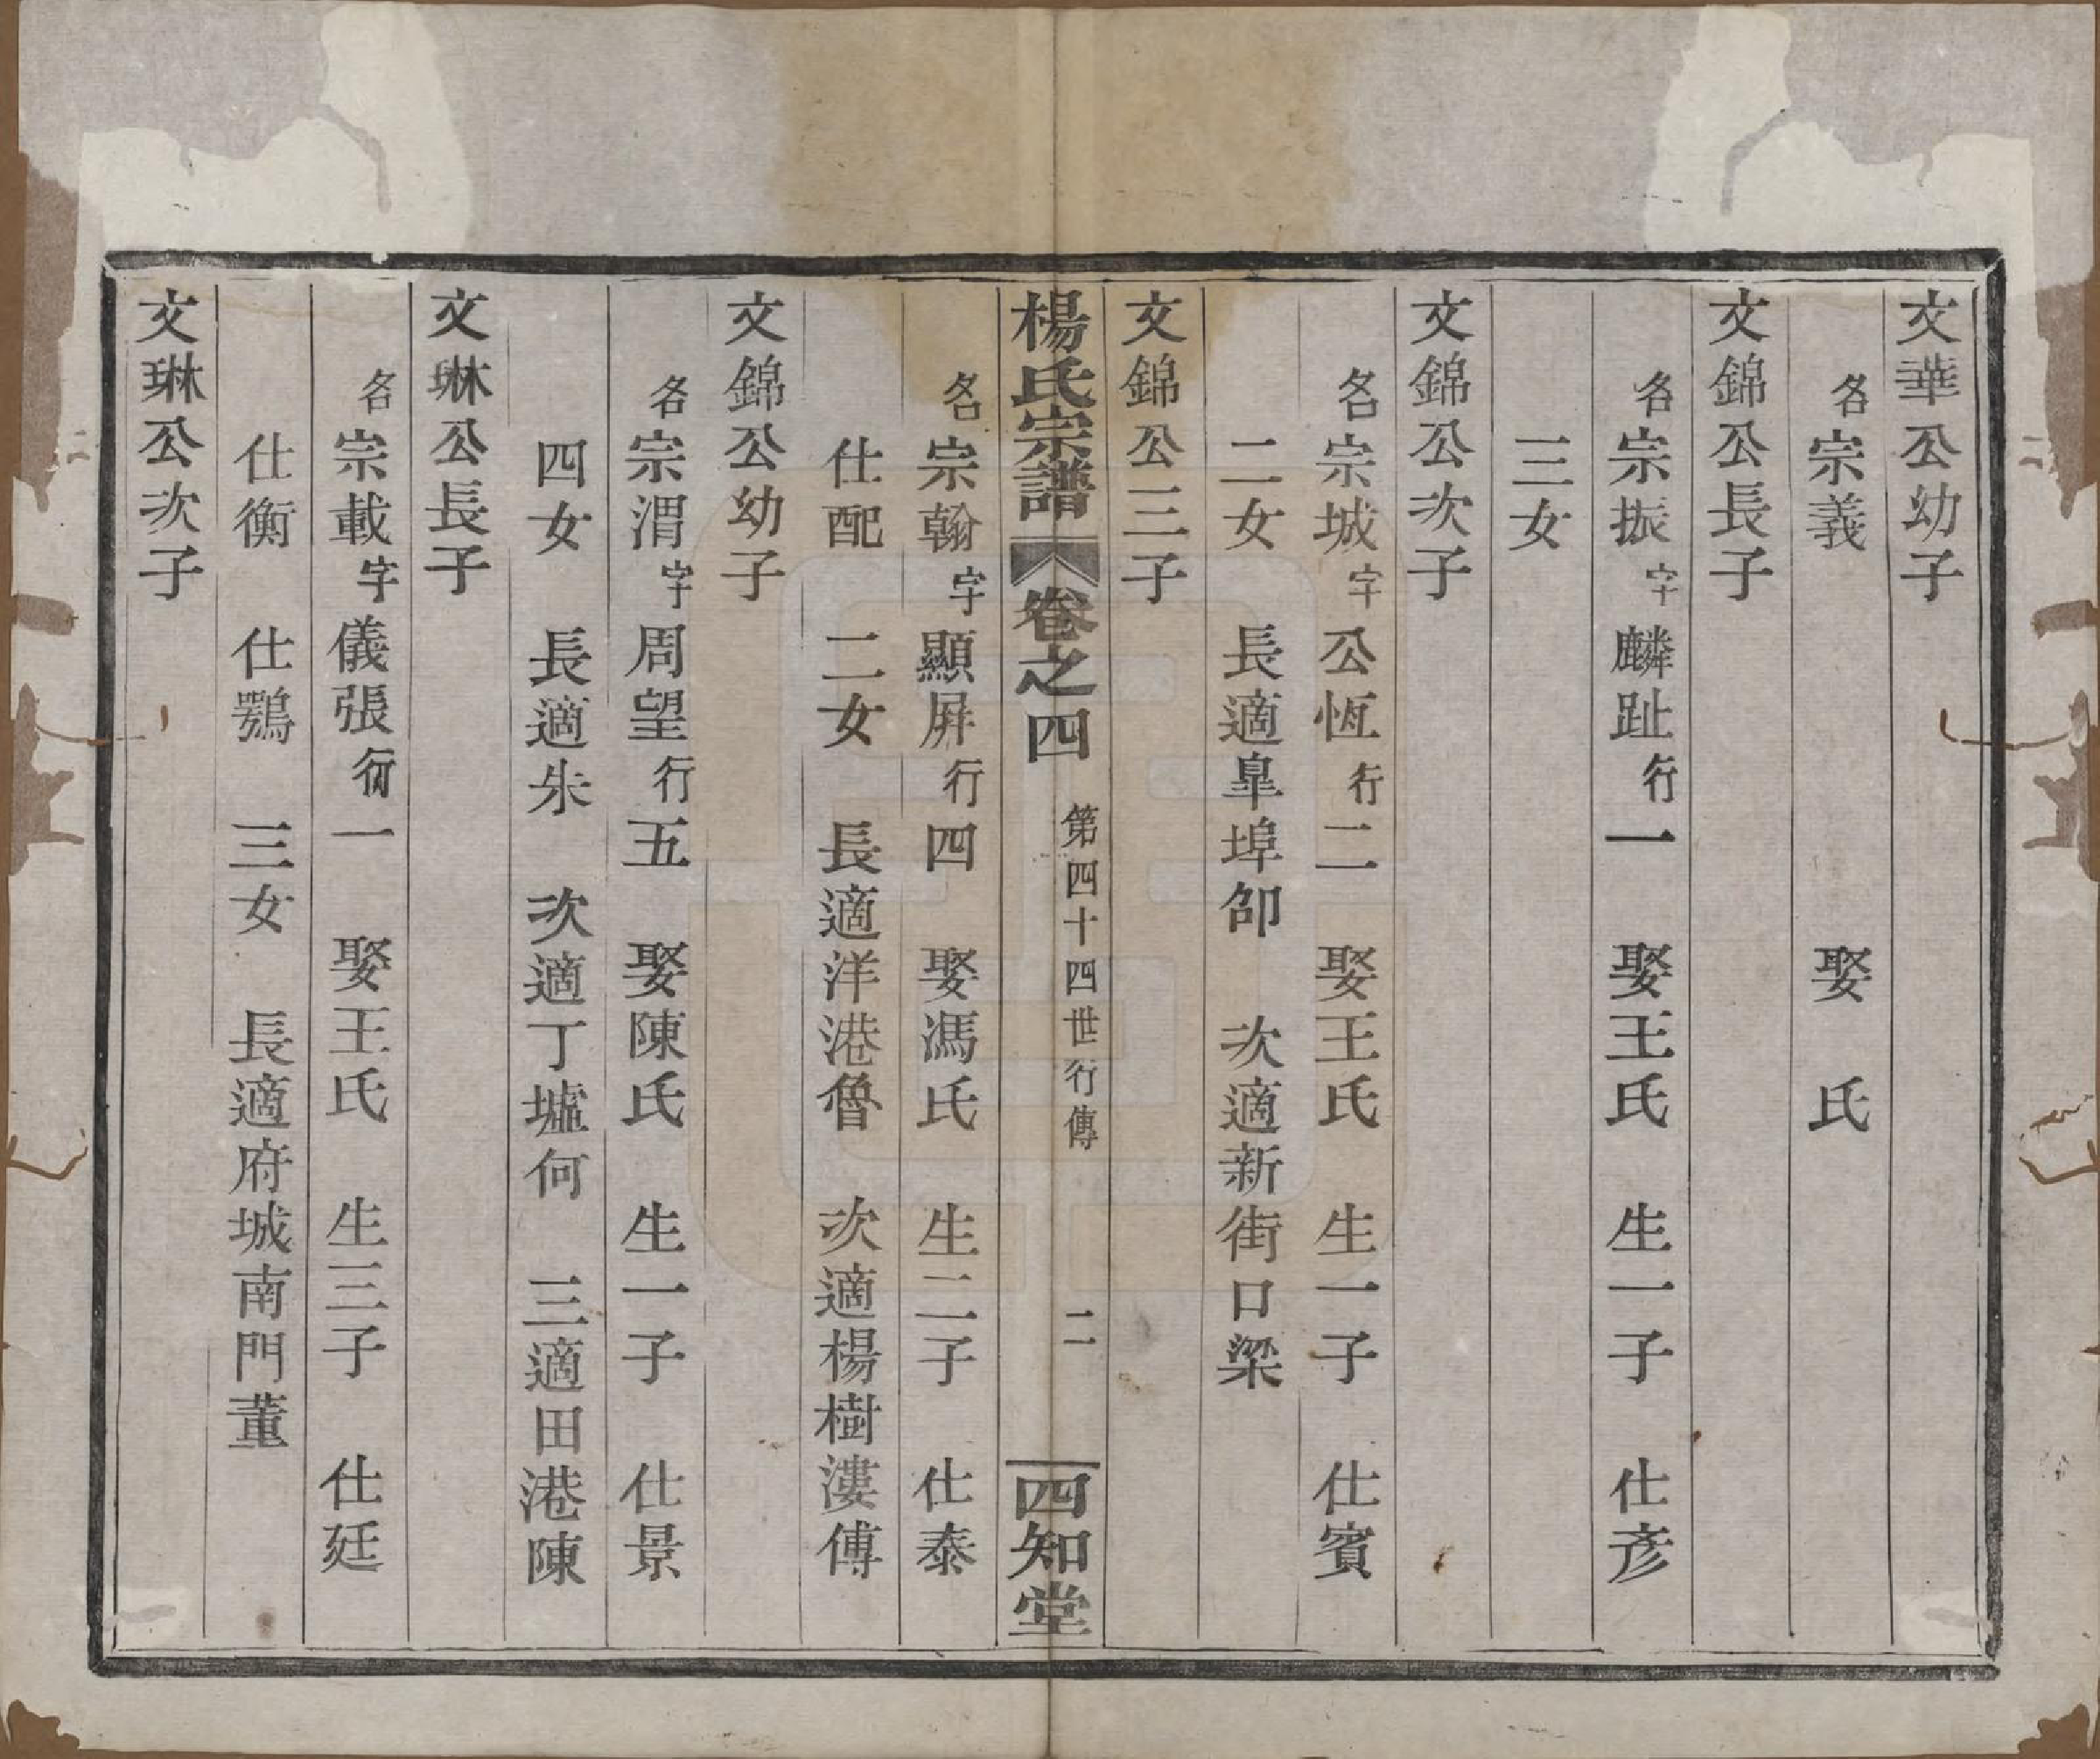 文華公幼子
名宗義 娶 氏
文錦公長子
名宗振字麟趾行一 娶王氏 生一子 仕彥
三女
文錦公次子
名宗城字公恆行二 娶王氏 生一子 仕賓
二女 長適皐埠邵 次適新街口梁
文錦公三子
楊氏宗譜 卷之四 第四十四世行傳 二 四知堂
名宗翰字顯屏行四 娶馮氏 生二子 仕泰
仕配 二女 長適洋港魯 次適楊樹漊傅
文錦公幼子
名宗渭字周望行五 娶陳氏 生一子 仕景
四女 長適朱 次適丁墟何 三適田港陳
文琳公長子
名宗載字儀張行一 娶王氏 生三子 仕廷
仕衡 仕鶚 三女 長適府城南門董
文琳公次子